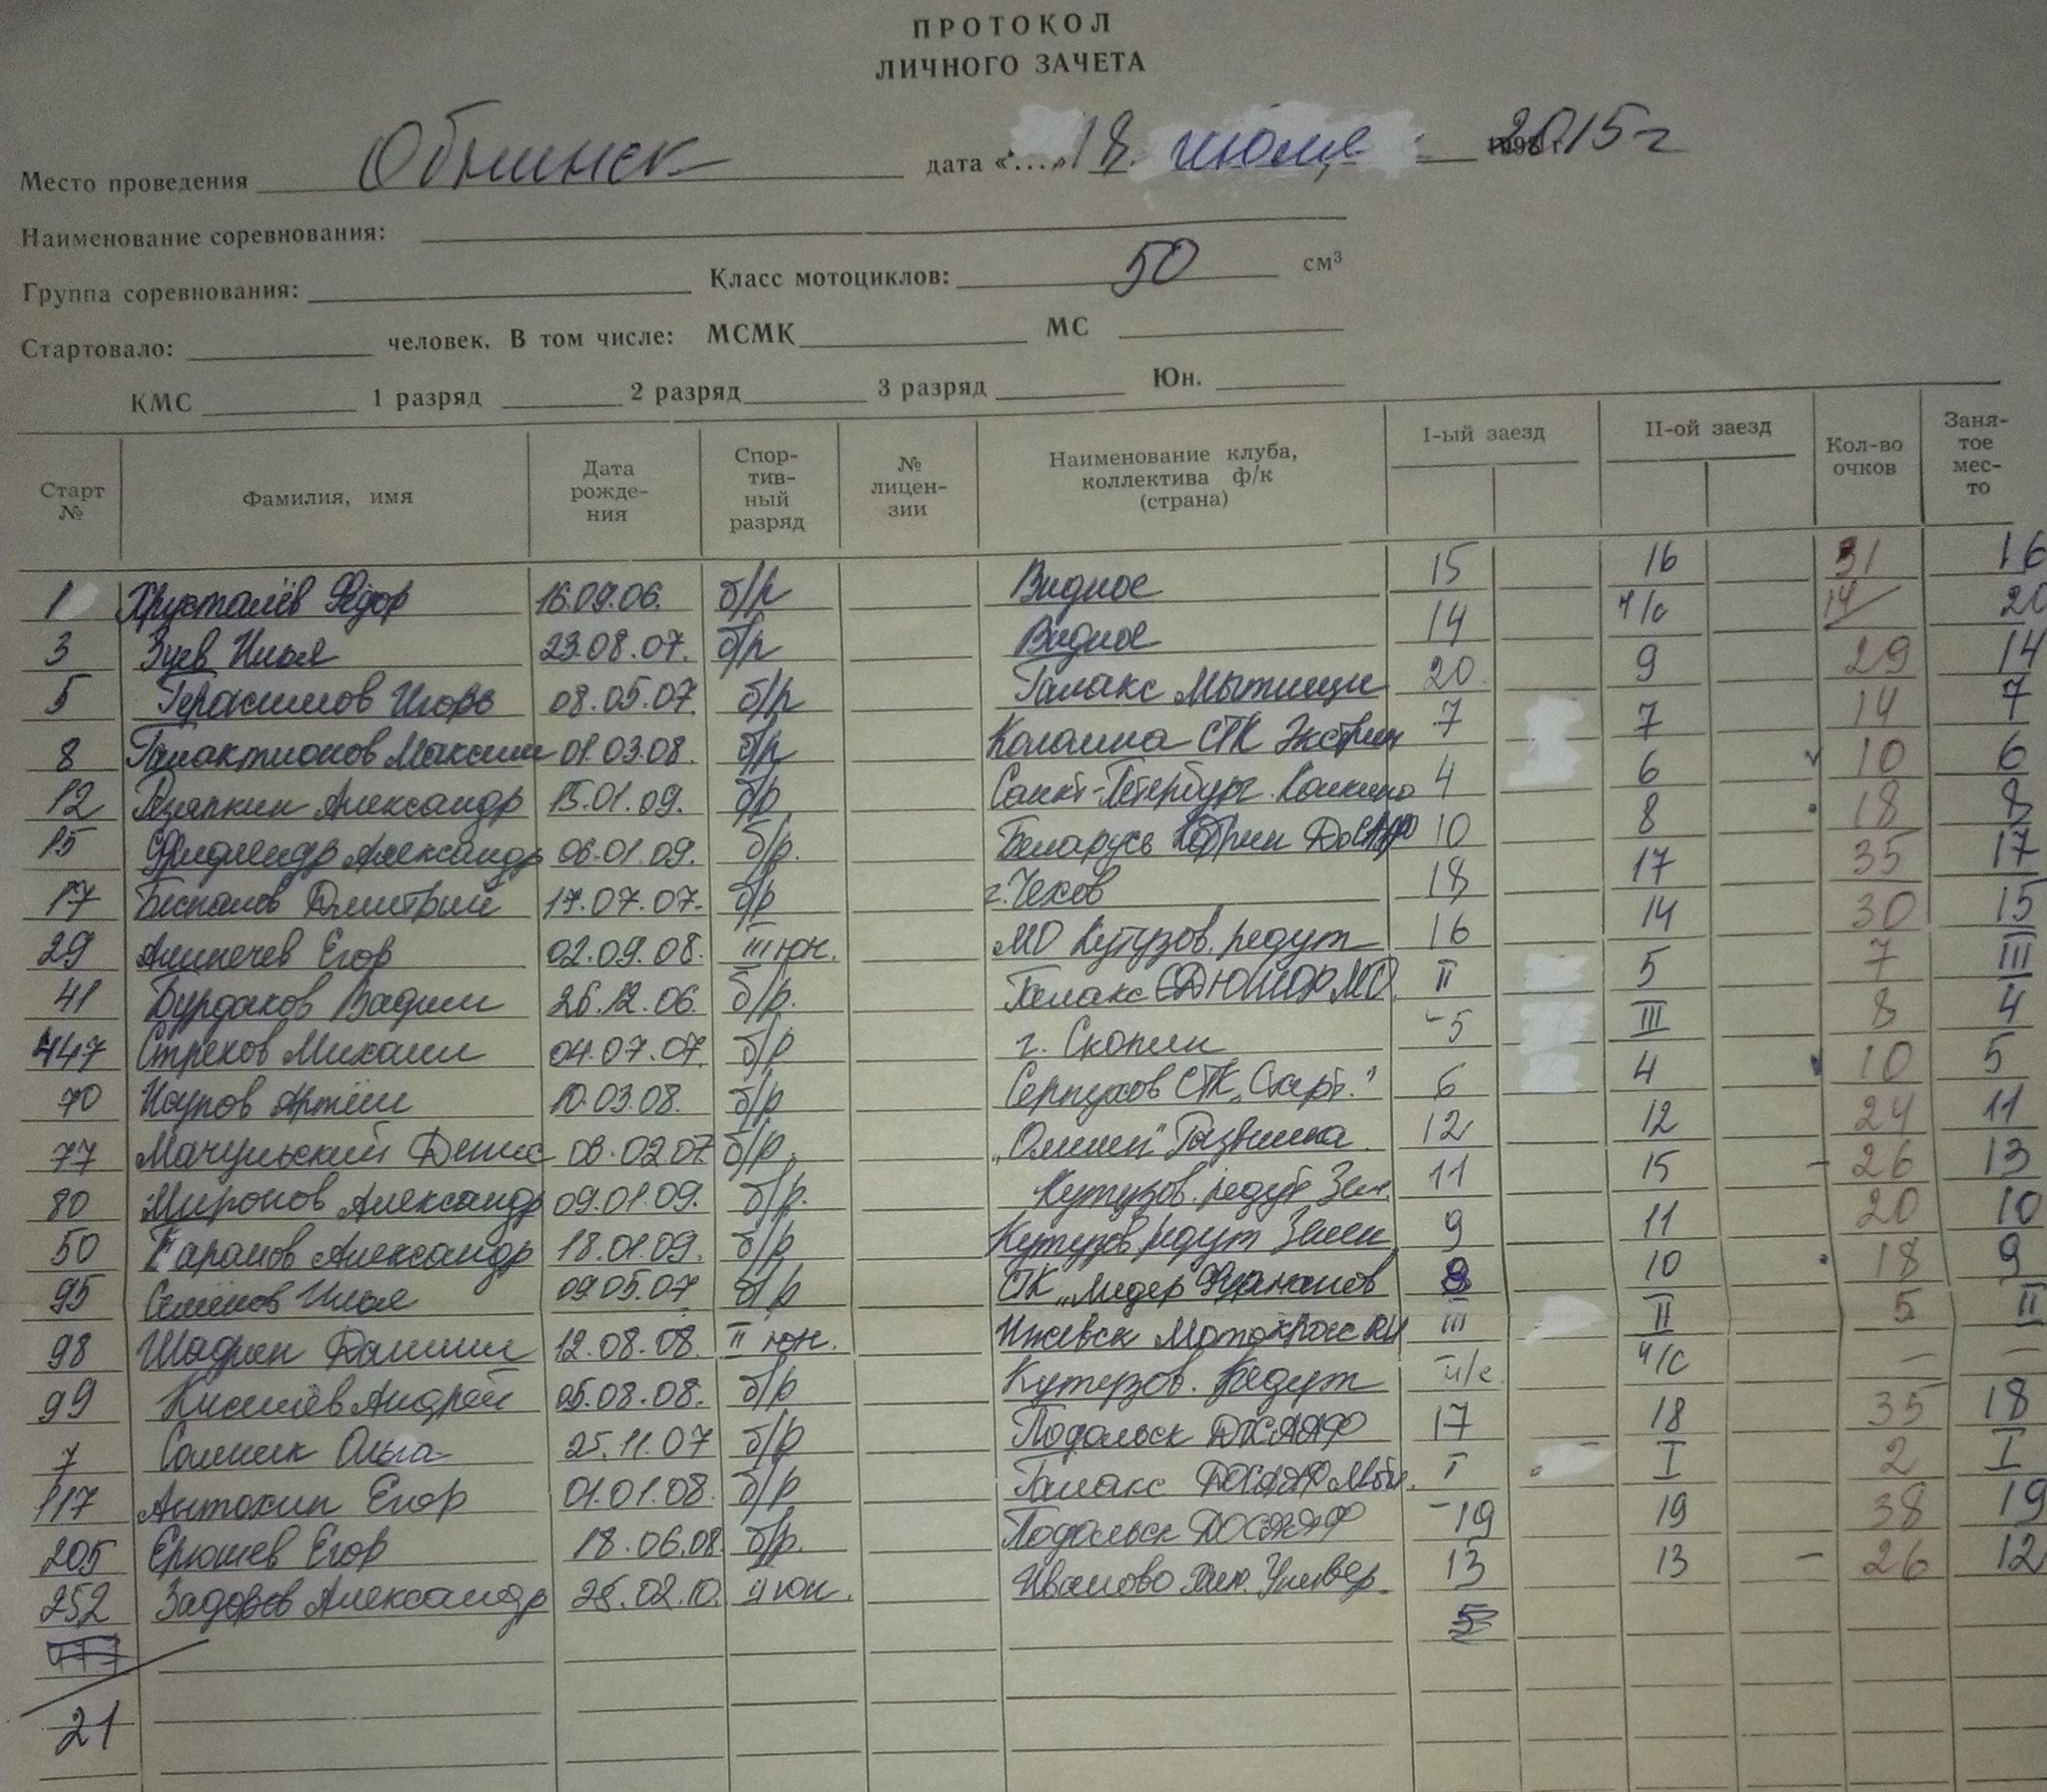 ПРОТОКОЛ
ЛИЧНОГО ЗАЧЕТА
Место проведения Обнинск дата «....» 18 июля 2015 г
Наименование соревнования:
Группа соревнования: Класс мотоциклов: 50 см³
Стартовало: человек. В том числе: МСМК МС
КМС 1 разряд 2 разряд 3 разряд Юн.
Старт № Фамилия, имя Дата рожде-ния Спор-тив-ный разряд № лицен-зии Наименование клуба, коллектива ф/к (страна) I-ый заезд II-ой заезд Кол-во очков Заня-тое мес-то
1 Хрусталёв Фёдор 16.09.06. б/р Видное 15 16 31 16
3 Зуев Илья 23.08.07. б/р Видное 14 н/с 14 20
5 Герасимов Игорь 08.05.07 б/р Галакс Мытищи 20 9 29 14
8 Галактионов Максим 01.03.08. б/р Коломна СТК Экстрим 7 7 14 7
12 Александр 15.01.09. б/р Санкт-Петербург 4 6 10 6
15 Александр 06.01.09. б/р. Беларусь Кобрин ДОСААФ 10 8 18 8
17 Беспалов Дмитрий 17.07.07. б/р г. Чехов 18 17 35 17
29 Егор 02.09.08. III юн. МО Кутузов. редут 16 14 30 15
41 Бурдаков Вадим 26.12.06. б/р. Галакс МО II 5 7 III
447 Стрехов Михаил 04.07.07. б/р г. Скопин 5 III 8 4
70 Наумов Артём 10.03.08. б/р Серпухов СТК „Старт." 6 4 10 5
77 Мачульский Денис 08.02.07 б/р. „Олимп" 12 12 24 11
80 Миронов Александр 09.01.09. б/р. Кутузов. редут Зел. 11 15 26 13
50 Таранов Александр 18.01.09. б/р Кутузов редут Зелен 9 11 20 10
95 Семёнов Илья 09.05.07 б/р СТК „Лидер 8 10 18 9
98 Шадрин Даниил 12.08.08. II юн. Ижевск Мотокросс III II 5 II
99 Киселёв Андрей 05.08.08. б/р Кутузов. Редут н/с н/с — —
7 Ольга 25.11.07 б/р Подольск ДОСААФ 17 18 35 18
117 Антохин Егор 01.01.08. б/р Галакс ДОСААФ I I 2 I
205 Ерюшев Егор 18.06.08. б/р. Подольск ДОСААФ 19 19 38 19
252 Задоров Александр 28.02.10. II юн. Иваново 13 13 26 12
21